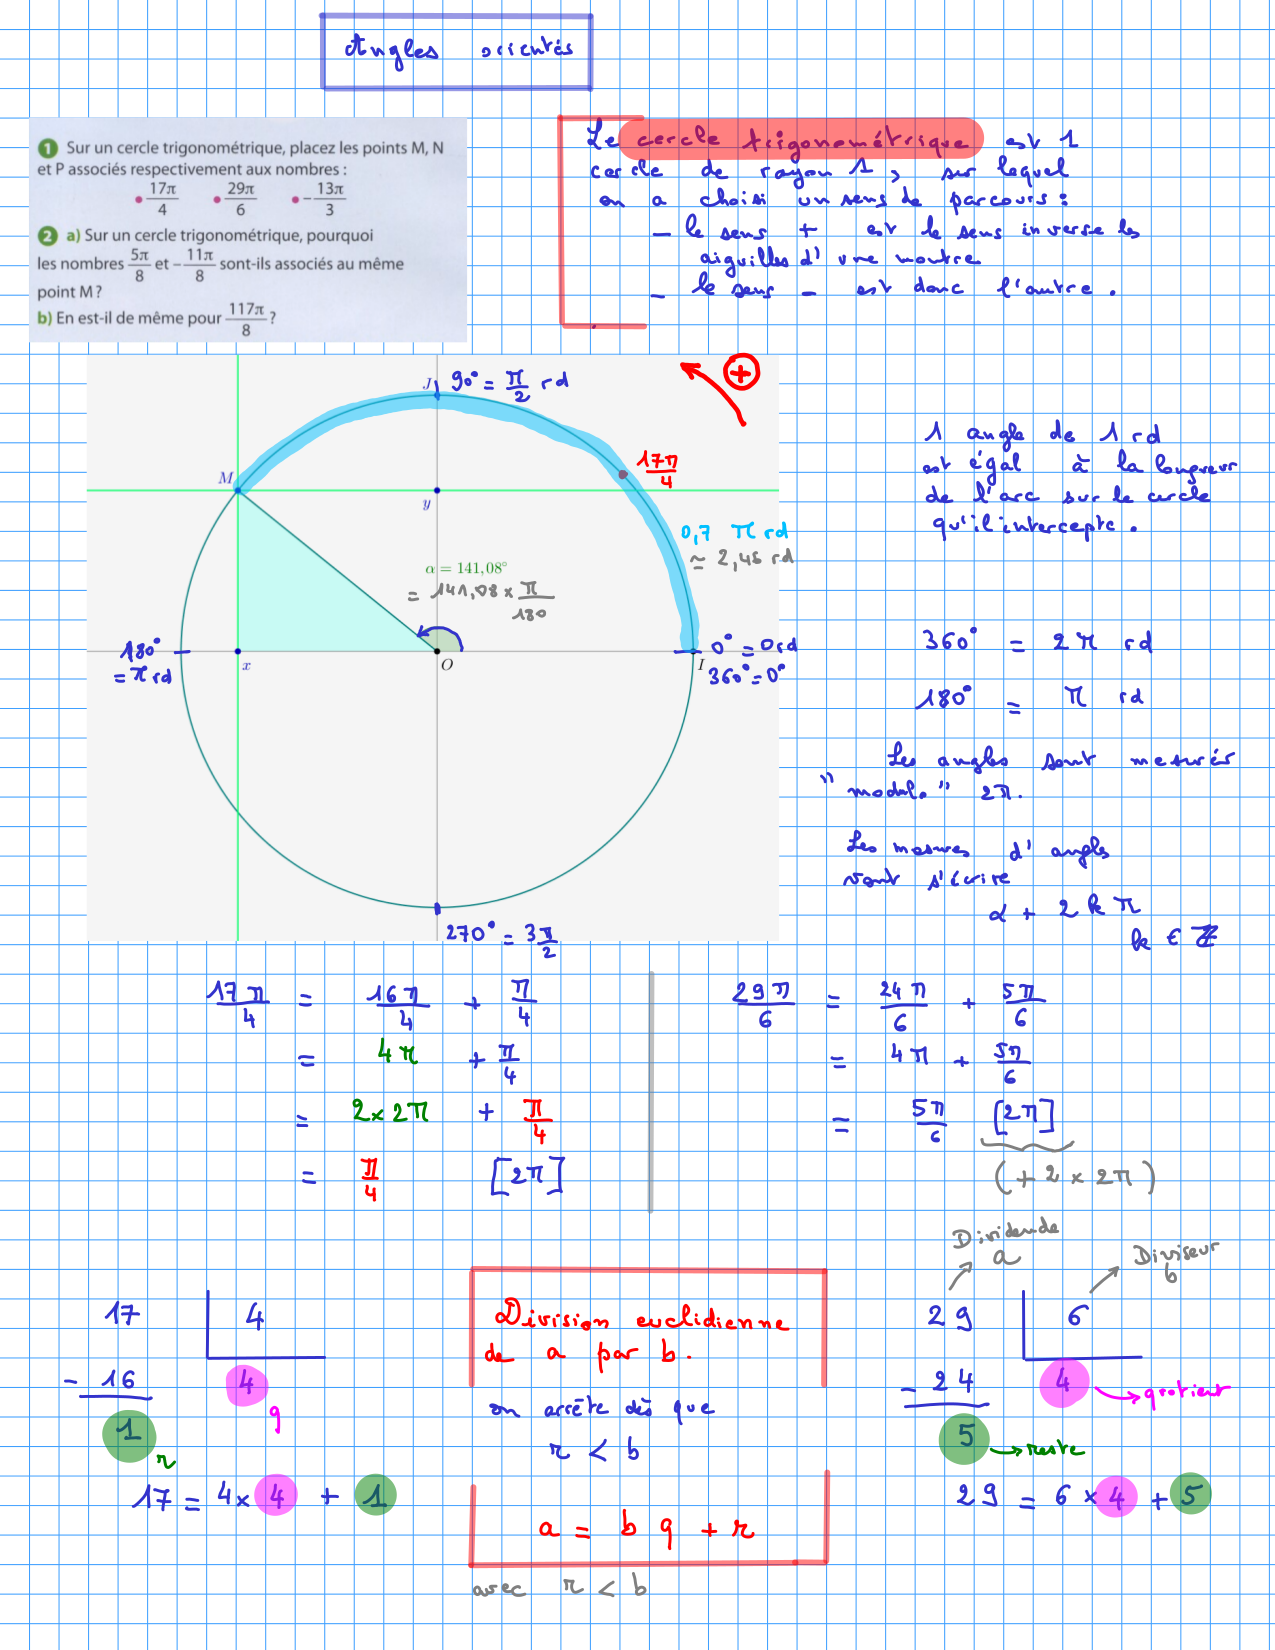 Angles orientés
1 Sur un cercle trigonométrique, placez les points M, N
et P associés respectivement aux nombres :
• 17π/4 • 29π/6 • -13π/3
2 a) Sur un cercle trigonométrique, pourquoi
les nombres 5π/8 et -11π/8 sont-ils associés au même
point M ?
b) En est-il de même pour 117π/8 ?
Le cercle trigonométrique est 1
cercle de rayon 1, sur lequel
on a choisi un sens de parcours :
- le sens + est le sens inverse les
aiguilles d'une montre
- le sens - est donc l'autre.
J 90° = π/2 rd
+
M
17π/4
y
0,7 π rd
≃ 2,46 rd
α = 141,08°
= 141,08 × π/180
180°
= π rd
x
O
I
0° = 0rd
360° = 0°
270° = 3π/2
1 angle de 1 rd
est égal à la longueur
de l'arc sur le cercle
qu'il intercepte.
360° = 2π rd
180° = π rd
Les angles sont mesurés
"modulo" 2π.
Les mesures d'angles
vont s'écrire
α + 2kπ
k ∈ ℤ
17π/4 = 16π/4 + π/4
= 4π + π/4
= 2×2π + π/4
= π/4 [2π]
29π/6 = 24π/6 + 5π/6
= 4π + 5π/6
= 5π/6 [2π]
(+ 2 × 2π)
17 4
- 16 4 q
1 r
17 = 4 × 4 + 1
Division euclidienne
de a par b.
on arrête dès que
r < b
a = b q + r
avec r < b
Dividende
a
Diviseur
b
29 6
- 24 4 → quotient
5 → reste
29 = 6 × 4 + 5